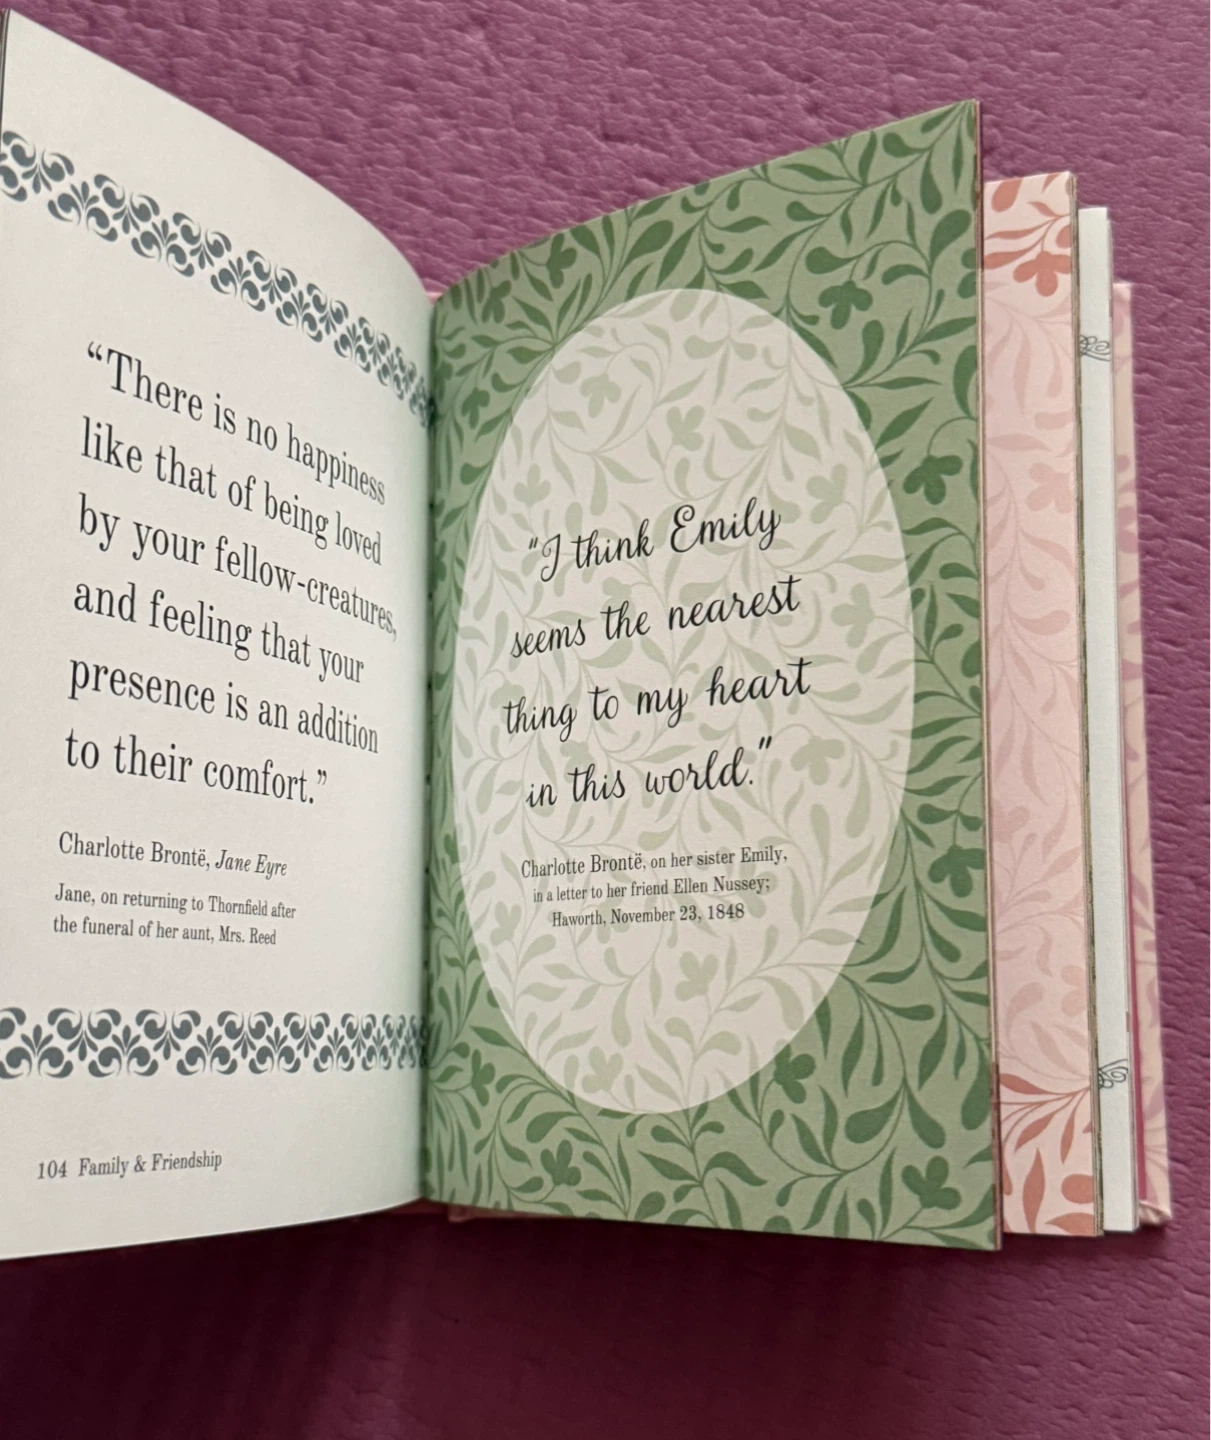 “There is no happiness
like that of being loved
by your fellow-creatures,
and feeling that your
presence is an addition
to their comfort.”
Charlotte Brontë, Jane Eyre
Jane, on returning to Thornfield after
the funeral of her aunt, Mrs. Reed
104 Family & Friendship
“I think Emily
seems the nearest
thing to my heart
in this world.”
Charlotte Brontë, on her sister Emily,
in a letter to her friend Ellen Nussey;
Haworth, November 23, 1848